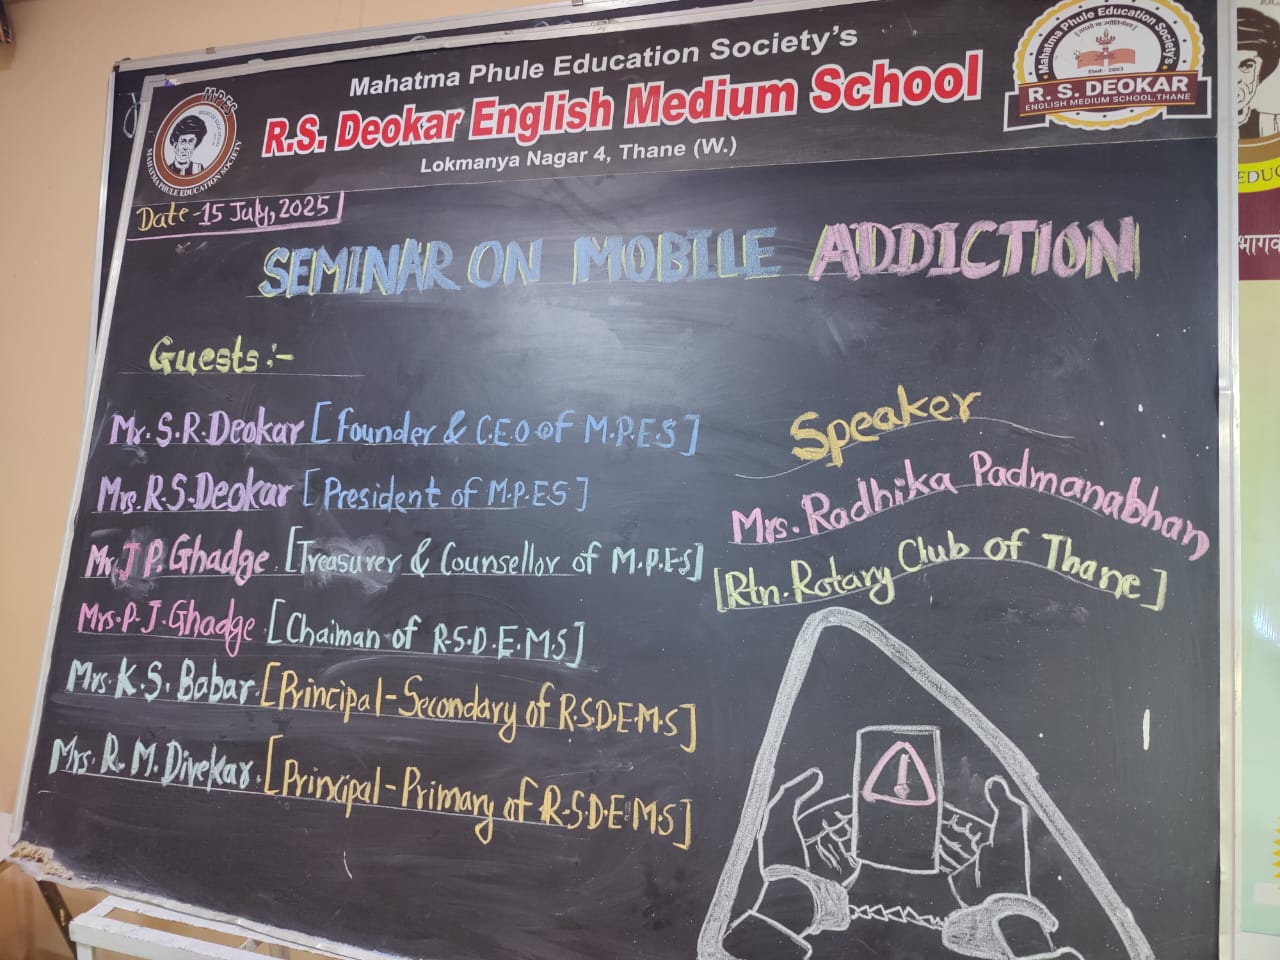 Mahatma Phule Education Society's
R.S. Deokar English Medium School
Lokmanya Nagar 4, Thane (W.)
M.P.E.S
MAHATMA PHULE EDUCATION SOCIETY
Mahatma Phule Education Society's
Estd.- 2003
R. S. DEOKAR
ENGLISH MEDIUM SCHOOL, THANE
Date - 15 July, 2025
SEMINAR ON MOBILE ADDICTION
Guests :-
Mr. S.R. Deokar [Founder & C.E.O of M.P.E.S]
Mrs. R.S. Deokar [President of M.P.E.S]
Mr. J P. Ghadge. [Treasurer & Counsellor of M.P.E.S]
Mrs. P. J. Ghadge [Chaiman of R.S.D.E.M.S]
Mrs. K. S. Babar. [Principal-Secondary of R.S.D.E.M.S]
Mrs. R. M. Divekar. [Principal-Primary of R.S.D.E.M.S]
Speaker
Mrs. Radhika Padmanabhan
[Rtn. Rotary Club of Thane]
!
EDUC
भागव